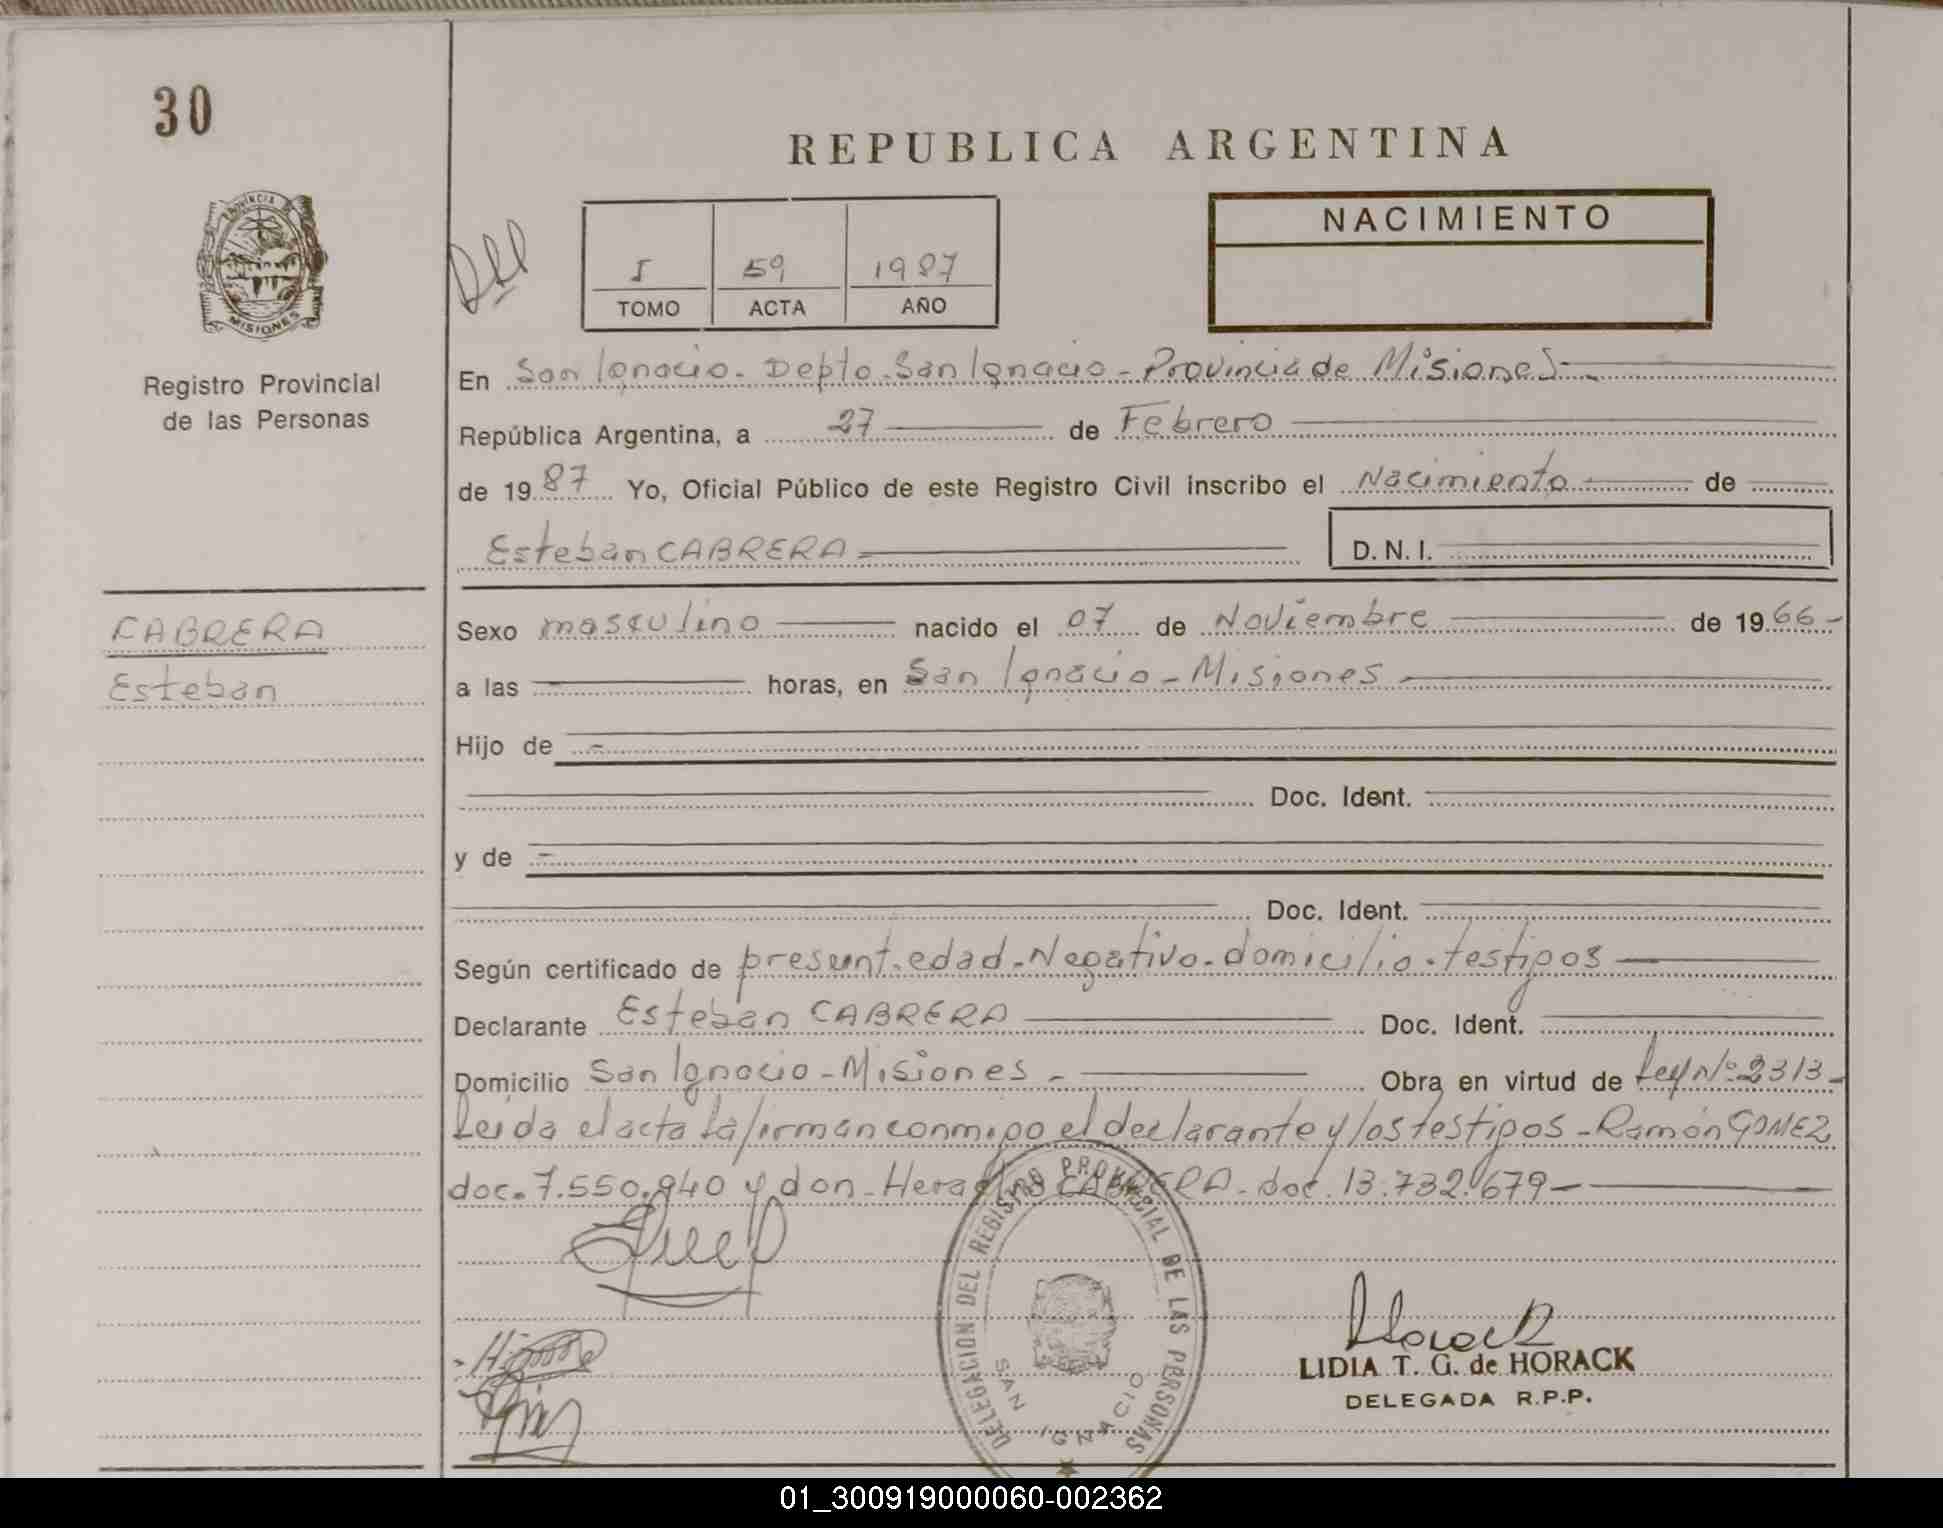 30
REPUBLICA ARGENTINA
PROVINCIA DE
MISIONES
Registro Provincial
de las Personas
I 59 1987
TOMO ACTA AÑO
NACIMIENTO
En San Ignacio - Depto. San Ignacio - Provincia de Misiones
República Argentina, a 27 de Febrero
de 1987 Yo, Oficial Público de este Registro Civil inscribo el Nacimiento de
Esteban CABRERA D.N.I.
CABRERA
Esteban
Sexo masculino nacido el 07 de Noviembre de 1966-
a las horas, en San Ignacio - Misiones
Hijo de
Doc. Ident.
y de
Doc. Ident.
Según certificado de presunt. edad - Negativo - domicilio - testigos
Declarante Esteban CABRERA Doc. Ident.
Domicilio San Ignacio - Misiones - Obra en virtud de Ley Nº 2313-
Leída el acta la firman conmigo el declarante y los testigos - Ramón GOMEZ
doc. 7.550.940 y don CABRERA - doc. 13.732.679-
DELEGACION DEL REGISTRO PROVINCIAL DE LAS PERSONAS
SAN IGNACIO
Horack
LIDIA T. G. de HORACK
DELEGADA R.P.P.
01_300919000060-002362